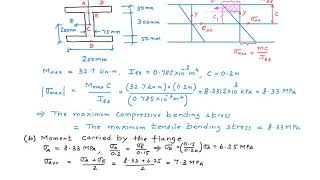 A
50mm
E
200mm
75mm
300mm
D
B
50mm
200mm
C₁
y
y
σxx
σxx = MC/I
Mmax = 32.7 kN·m, Izz = 0.785×10⁻³m⁴, C = 0.2m
|σmax| = Mmax C / Izz = (32.7kN·m)×(0.2m) / (0.785×10⁻³m⁴) = 8.3312×10³ kPa = 8.33 MPa
⇒ The maximum compressive bending stress
= The maximum tensile bending stress = 8.33 MPa
(b) Moment carried by the flange
σA = 8.33 MPa, σA/0.2 = σE/0.15 ⇒ σE = (0.15/0.2)σA = 6.25 MPa
σave = σA + σE / 2 = 8.33 + 6.25 / 2 = 7.3 MPa